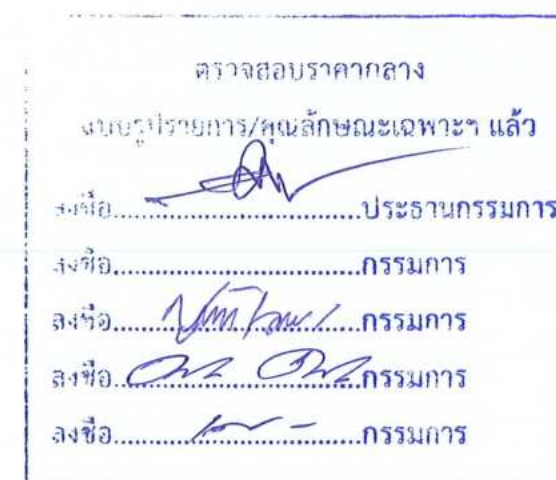 ตรวจสอบราคากลาง
แบบรูปรายการ/คุณลักษณะเฉพาะฯ แล้ว
ลงชื่อ..................................ประธานกรรมการ
ลงชื่อ..................................กรรมการ
ลงชื่อ..................................กรรมการ
ลงชื่อ..................................กรรมการ
ลงชื่อ..................................กรรมการ